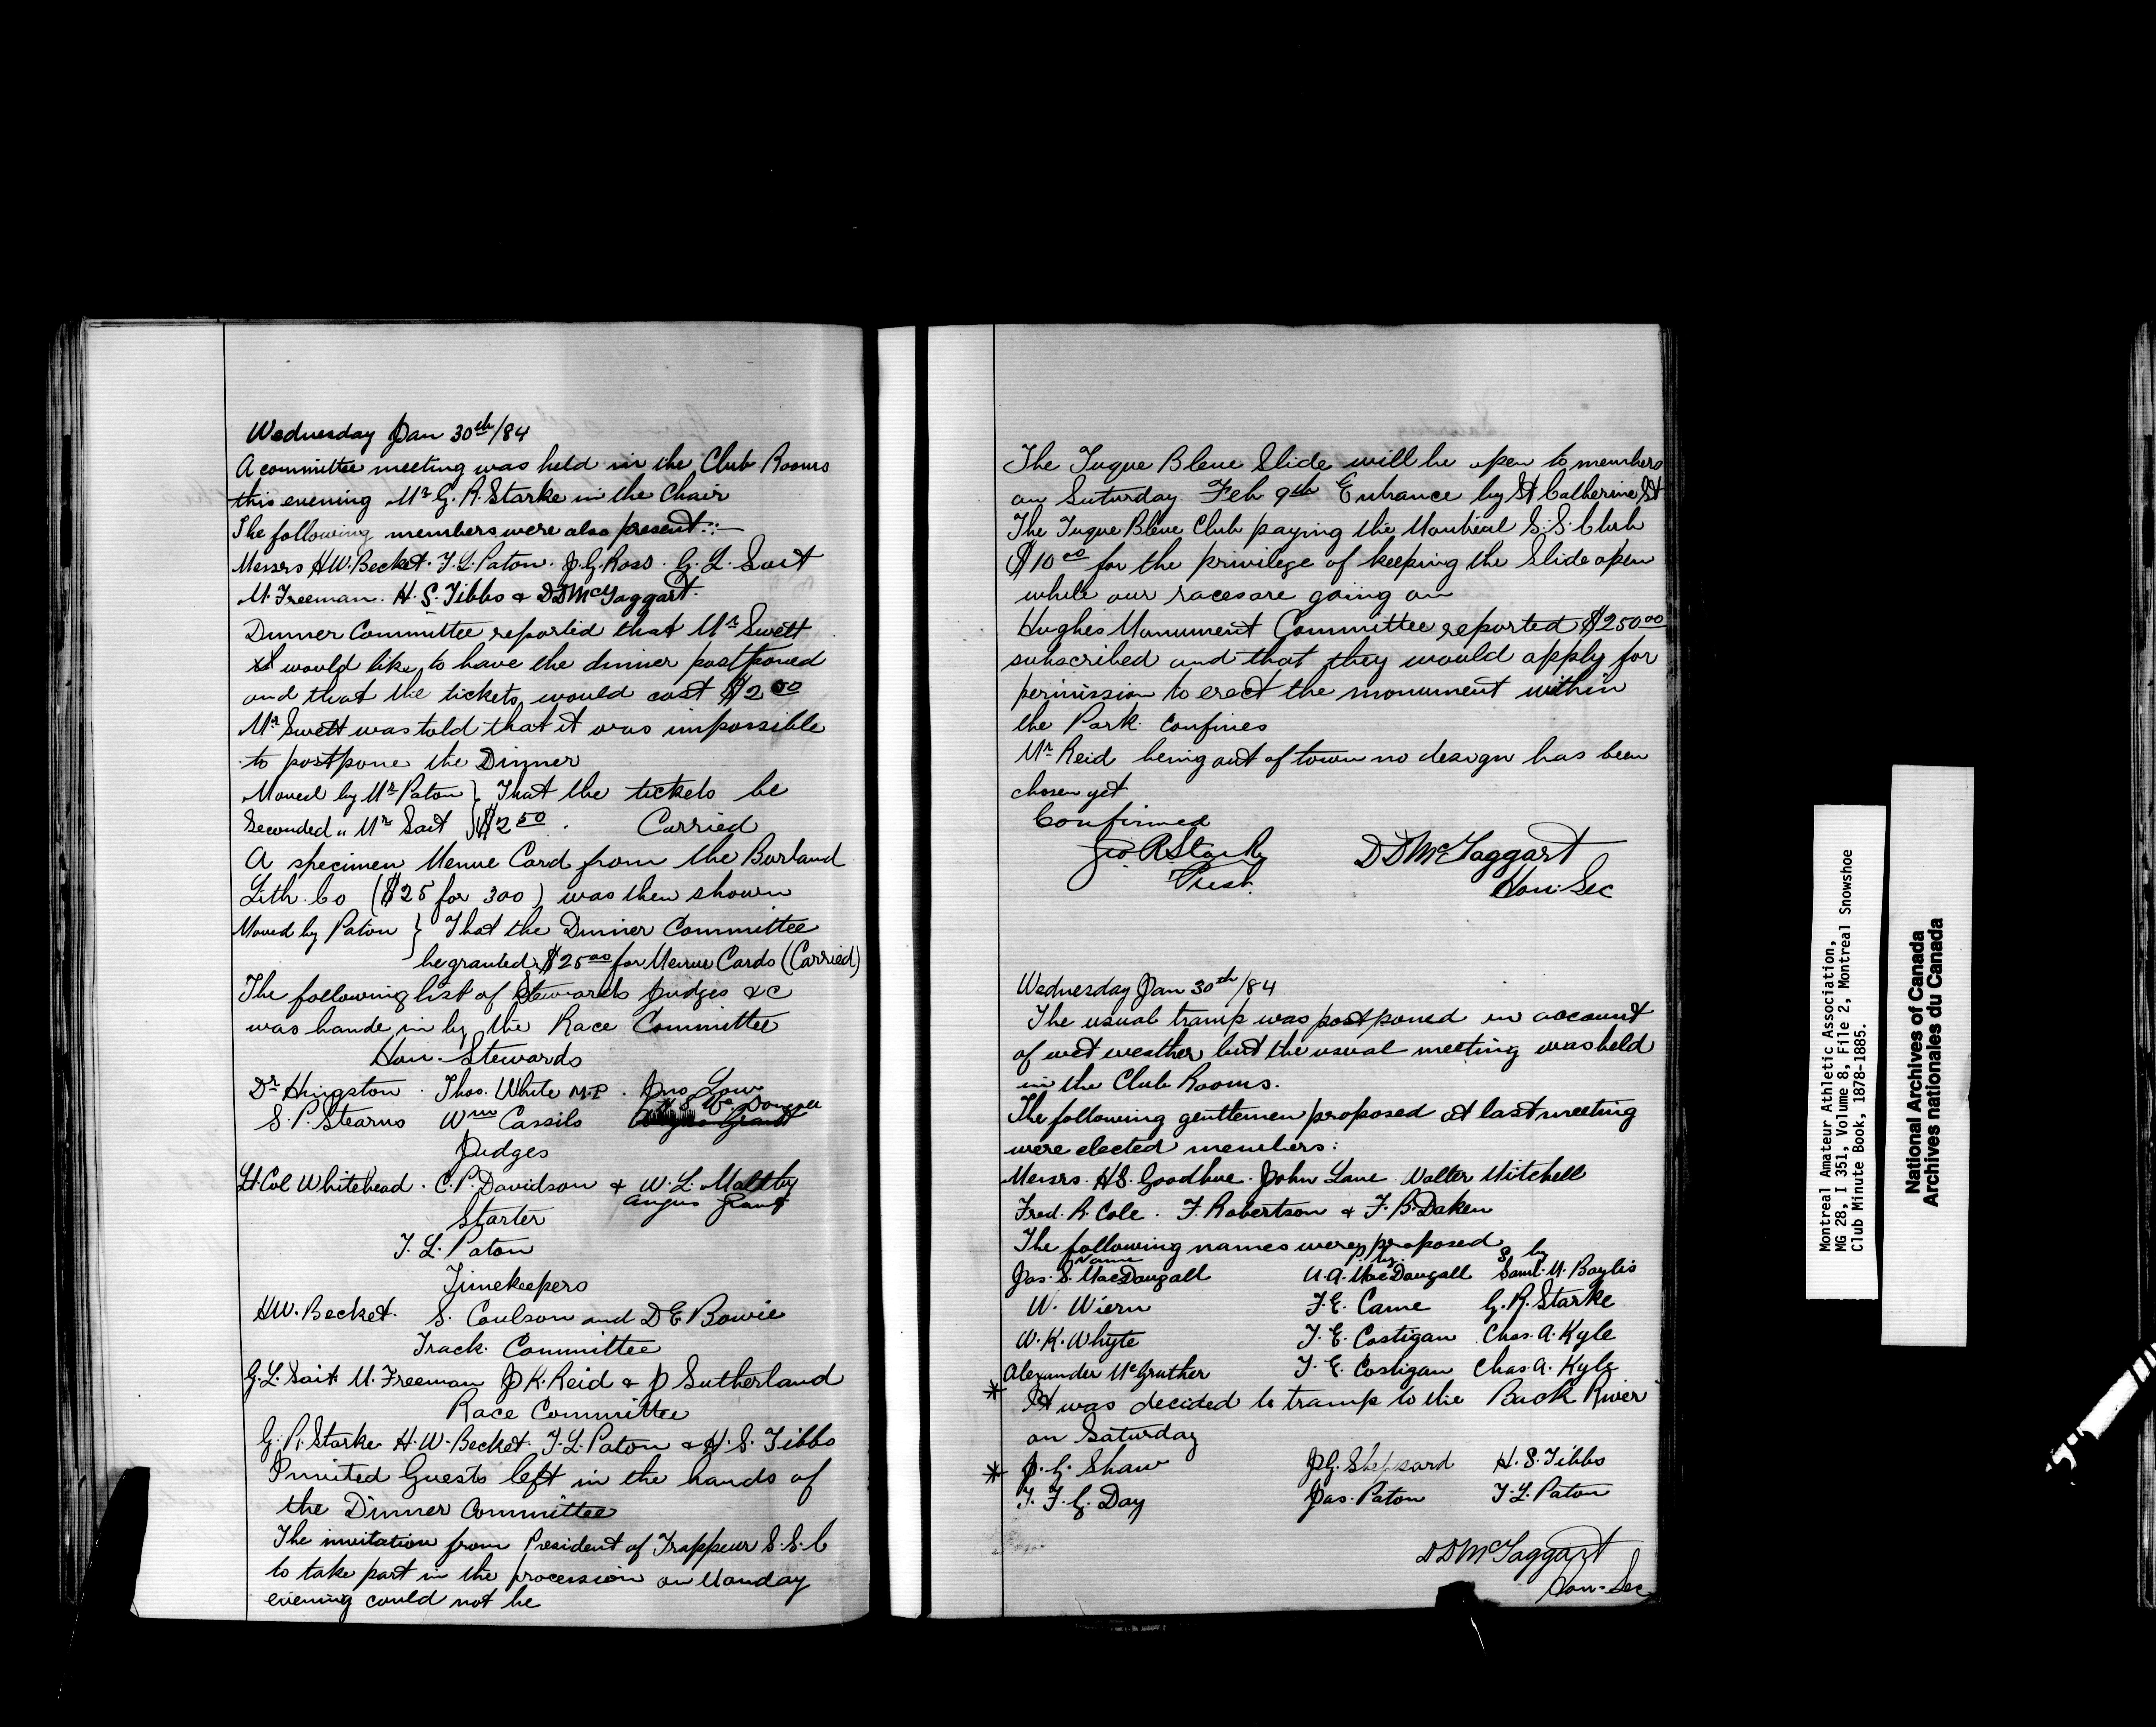 Wednesday Jan 30th/84
A committee meeting was held in the Club Rooms
this evening Mr G. R. Starke in the Chair
The following members were also present:—
Messrs H.W. Becket. T. L. Paton. J. G. Ross. G. L. Sait
M. Freeman. H. S. Tibbs & D D McTaggart.
Dinner Committee reported that Mr Swett
would like to have the dinner postponed
and that the tickets would cost $2 50
Mr Swett was told that it was impossible
to postpone the Dinner
Moved by Mr Paton } That the tickets be
Seconded " Mr Sait } $2 50. Carried
A specimen Menue Card from the Burland
Lith. Co ($25 for 300) was then shown
Moved by Paton } That the Dinner Committee
be granted $25 00 for Menue Cards (Carried)
The following list of Stewards Judges &c
was hande in by the Race Committee
Hon. Stewards
Dr Hingston. Thos. White M.P. Jno Low
S. P. Stearns Wm Cassils H. S. McDougall
Judges
Lt. Col Whitehead. C. P. Davidson & W. L. Maltby
Angus Grant
Starter
T. L. Paton
Timekeepers
H.W. Becket. S. Coulson and D E Bowie
Track. Committee
G. L. Sait M. Freeman J K. Reid & J Sutherland
Race Committee
G. R. Starke H. W. Becket. T. L. Paton & H. S. Tibbs
Invited Guests left in the hands of
the Dinner Committee
The invitation from President of Trappeur S. S. C
to take part in the procession on Monday
evening could not be
The Tuque Bleue Slide will be open to members
on Saturday Feb 9th Entrance by St Catherine St
The Tuque Bleue Club paying the Montreal S. S. Club
$10 00 for the privilege of keeping the Slide open
while our races are going on
Hughes Monument Committee reported $250 00
subscribed and that they would apply for
permission to erect the monument within
the Park. confines
Mr Reid being out of town no design has been
chosen yet
Confirmed
Geo. R Starke D D McTaggart
Prest. Hon. Sec
Wednesday Jan 30th/84
The usual tramp was postponed on account
of wet weather but the usual meeting was held
in the Club Rooms.
The following gentlemen proposed at last meeting
were elected members:
Messrs. H S. Goodhue. John Lane Walter Mitchell
Fred. R. Cole. F. Robertson & F. B. Daken
The following names were proposed
Name P. by. S. by
Jas. S. MacDougall M. A. MacDougall Saml. M. Baylis
W. Wiern F. E. Came G. R. Starke
W. K. Whyte T. E. Costigan Chas. A. Kyle
Alexander McGruther T. E. Costigan Chas. A. Kyle
* It was decided to tramp to the Back River
on Saturday
* J. G. Shaw J G. Sheppard H. S. Tibbs
T. F. G. Day Jas. Paton T. L. Paton
D D McTaggart
Hon. Sec
Montreal Amateur Athletic Association,
MG 28, I 351, Volume 8, File 2, Montreal Snowshoe
Club Minute Book, 1878-1885.
National Archives of Canada
Archives nationales du Canada